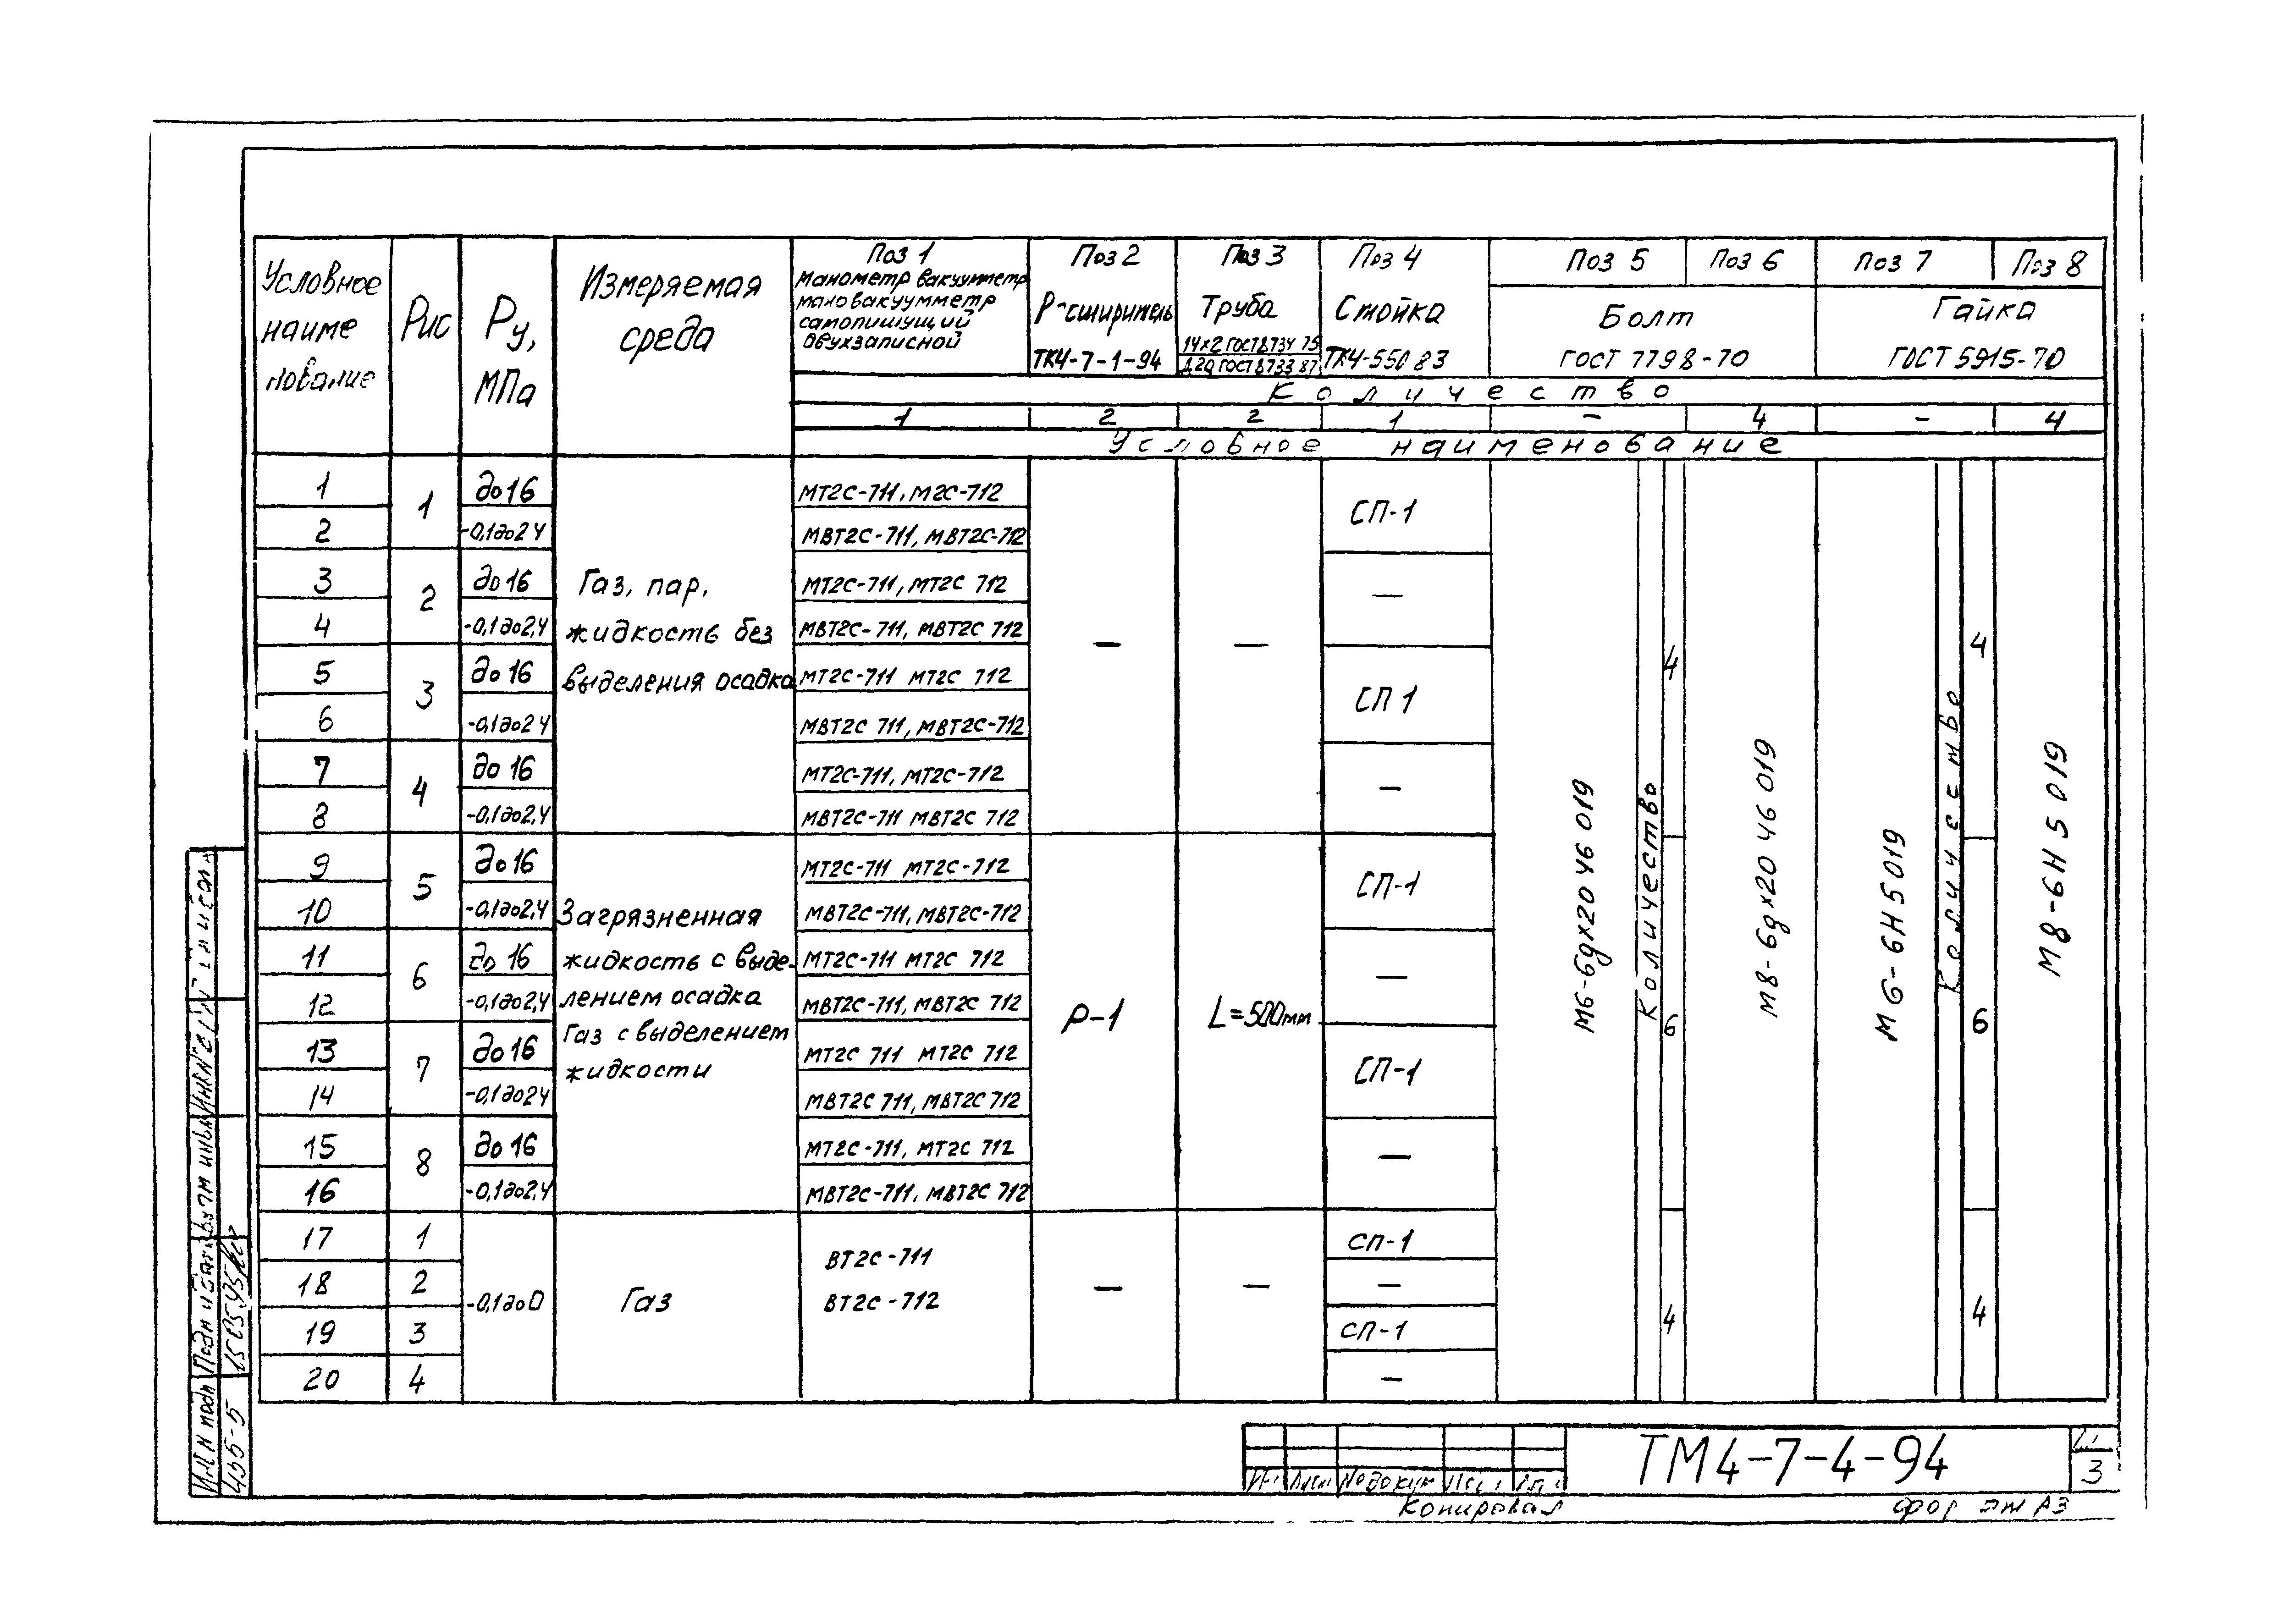 Условное наименование Рис Ру, МПа Измеряемая среда
Поз 1 Поз 2 Поз 3 Поз 4 Поз 5 Поз 6 Поз 7 Поз 8
Манометр вакуумметр
мановакуумметр
самопишущий
двухзаписной
Р-сширитель
ТК4-7-1-94
Труба
14х2 ГОСТ 8734 75
Д20 ГОСТ 8733 87
Стойка
ТК4-550 83
Болт
ГОСТ 7798-70
Гайка
ГОСТ 5915-70
Количество
1 2 2 1 – 4 – 4
Условное наименование
1 1 до 16 МТ2С-711, М2С-712 СП-1
2 -0,1до2 4 МВТ2С-711, МВТ2С-712
3 2 до 16 МТ2С-711, МТ2С 712 —
4 -0,1до2,4 МВТ2С-711, МВТ2С 712
5 3 до 16 МТ2С-711 МТ2С 712 СП 1
6 -0,1до2 4 МВТ2С 711, МВТ2С-712
7 4 до 16 МТ2С-711, МТ2С-712 —
8 -0,1до2,4 МВТ2С-711 МВТ2С 712
Газ, пар,
жидкость без
выделения осадка
— —
9 5 до 16 МТ2С-711 МТ2С-712 СП-1
10 -0,1до2,4 МВТ2С-711, МВТ2С-712
11 6 до 16 МТ2С-711 МТ2С 712 —
12 -0,1до2,4 МВТ2С-711, МВТ2С 712
13 7 до 16 МТ2С 711 МТ2С 712 СП-1
14 -0,1до2 4 МВТ2С 711, МВТ2С 712
15 8 до 16 МТ2С-711, МТ2С 712 —
16 -0,1до2,4 МВТ2С-711, МВТ2С 712
Загрязненная
жидкость с выде-
лением осадка
Газ с выделением
жидкости
Р-1 L=500мм
17 1 СП-1
18 2 —
19 3 СП-1
20 4 —
-0,1до0 Газ
ВТ2С-711
ВТ2С-712
— —
М6-6gх20 46 019
Количество
4
6
4
М8-6gх20 46 019
М6-6Н 5 019
Количество
4
6
4
М8-6Н 5 019
455-5
ТМ4-7-4-94
3
Копировал
А3